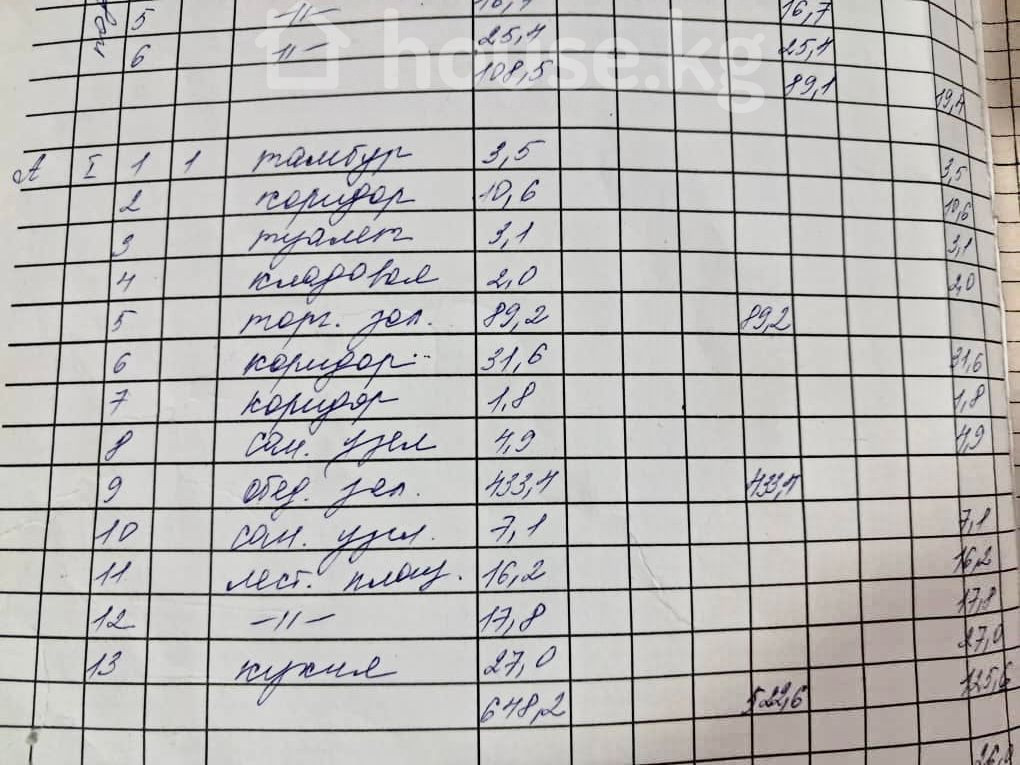 5 -II- 16,7 16,7
6 II- 25,4 25,4
108,5 89,1 19,4
house.kg
А I 1 1 тамбур 3,5 3,5
2 коридор 10,6 10,6
3 туалет 3,1 3,1
4 кладовая 2,0 2,0
5 торг. зал. 89,2 89,2
6 коридор 31,6 31,6
7 коридор 1,8 1,8
8 сан. узел 4,9 4,9
9 обед. зал. 433,4 433,4
10 сан. узел. 7,1 7,1
11 лест. площ. 16,2 16,2
12 -II- 17,8 17,8
13 кухня 27,0 27,0
648,2 522,6 125,6